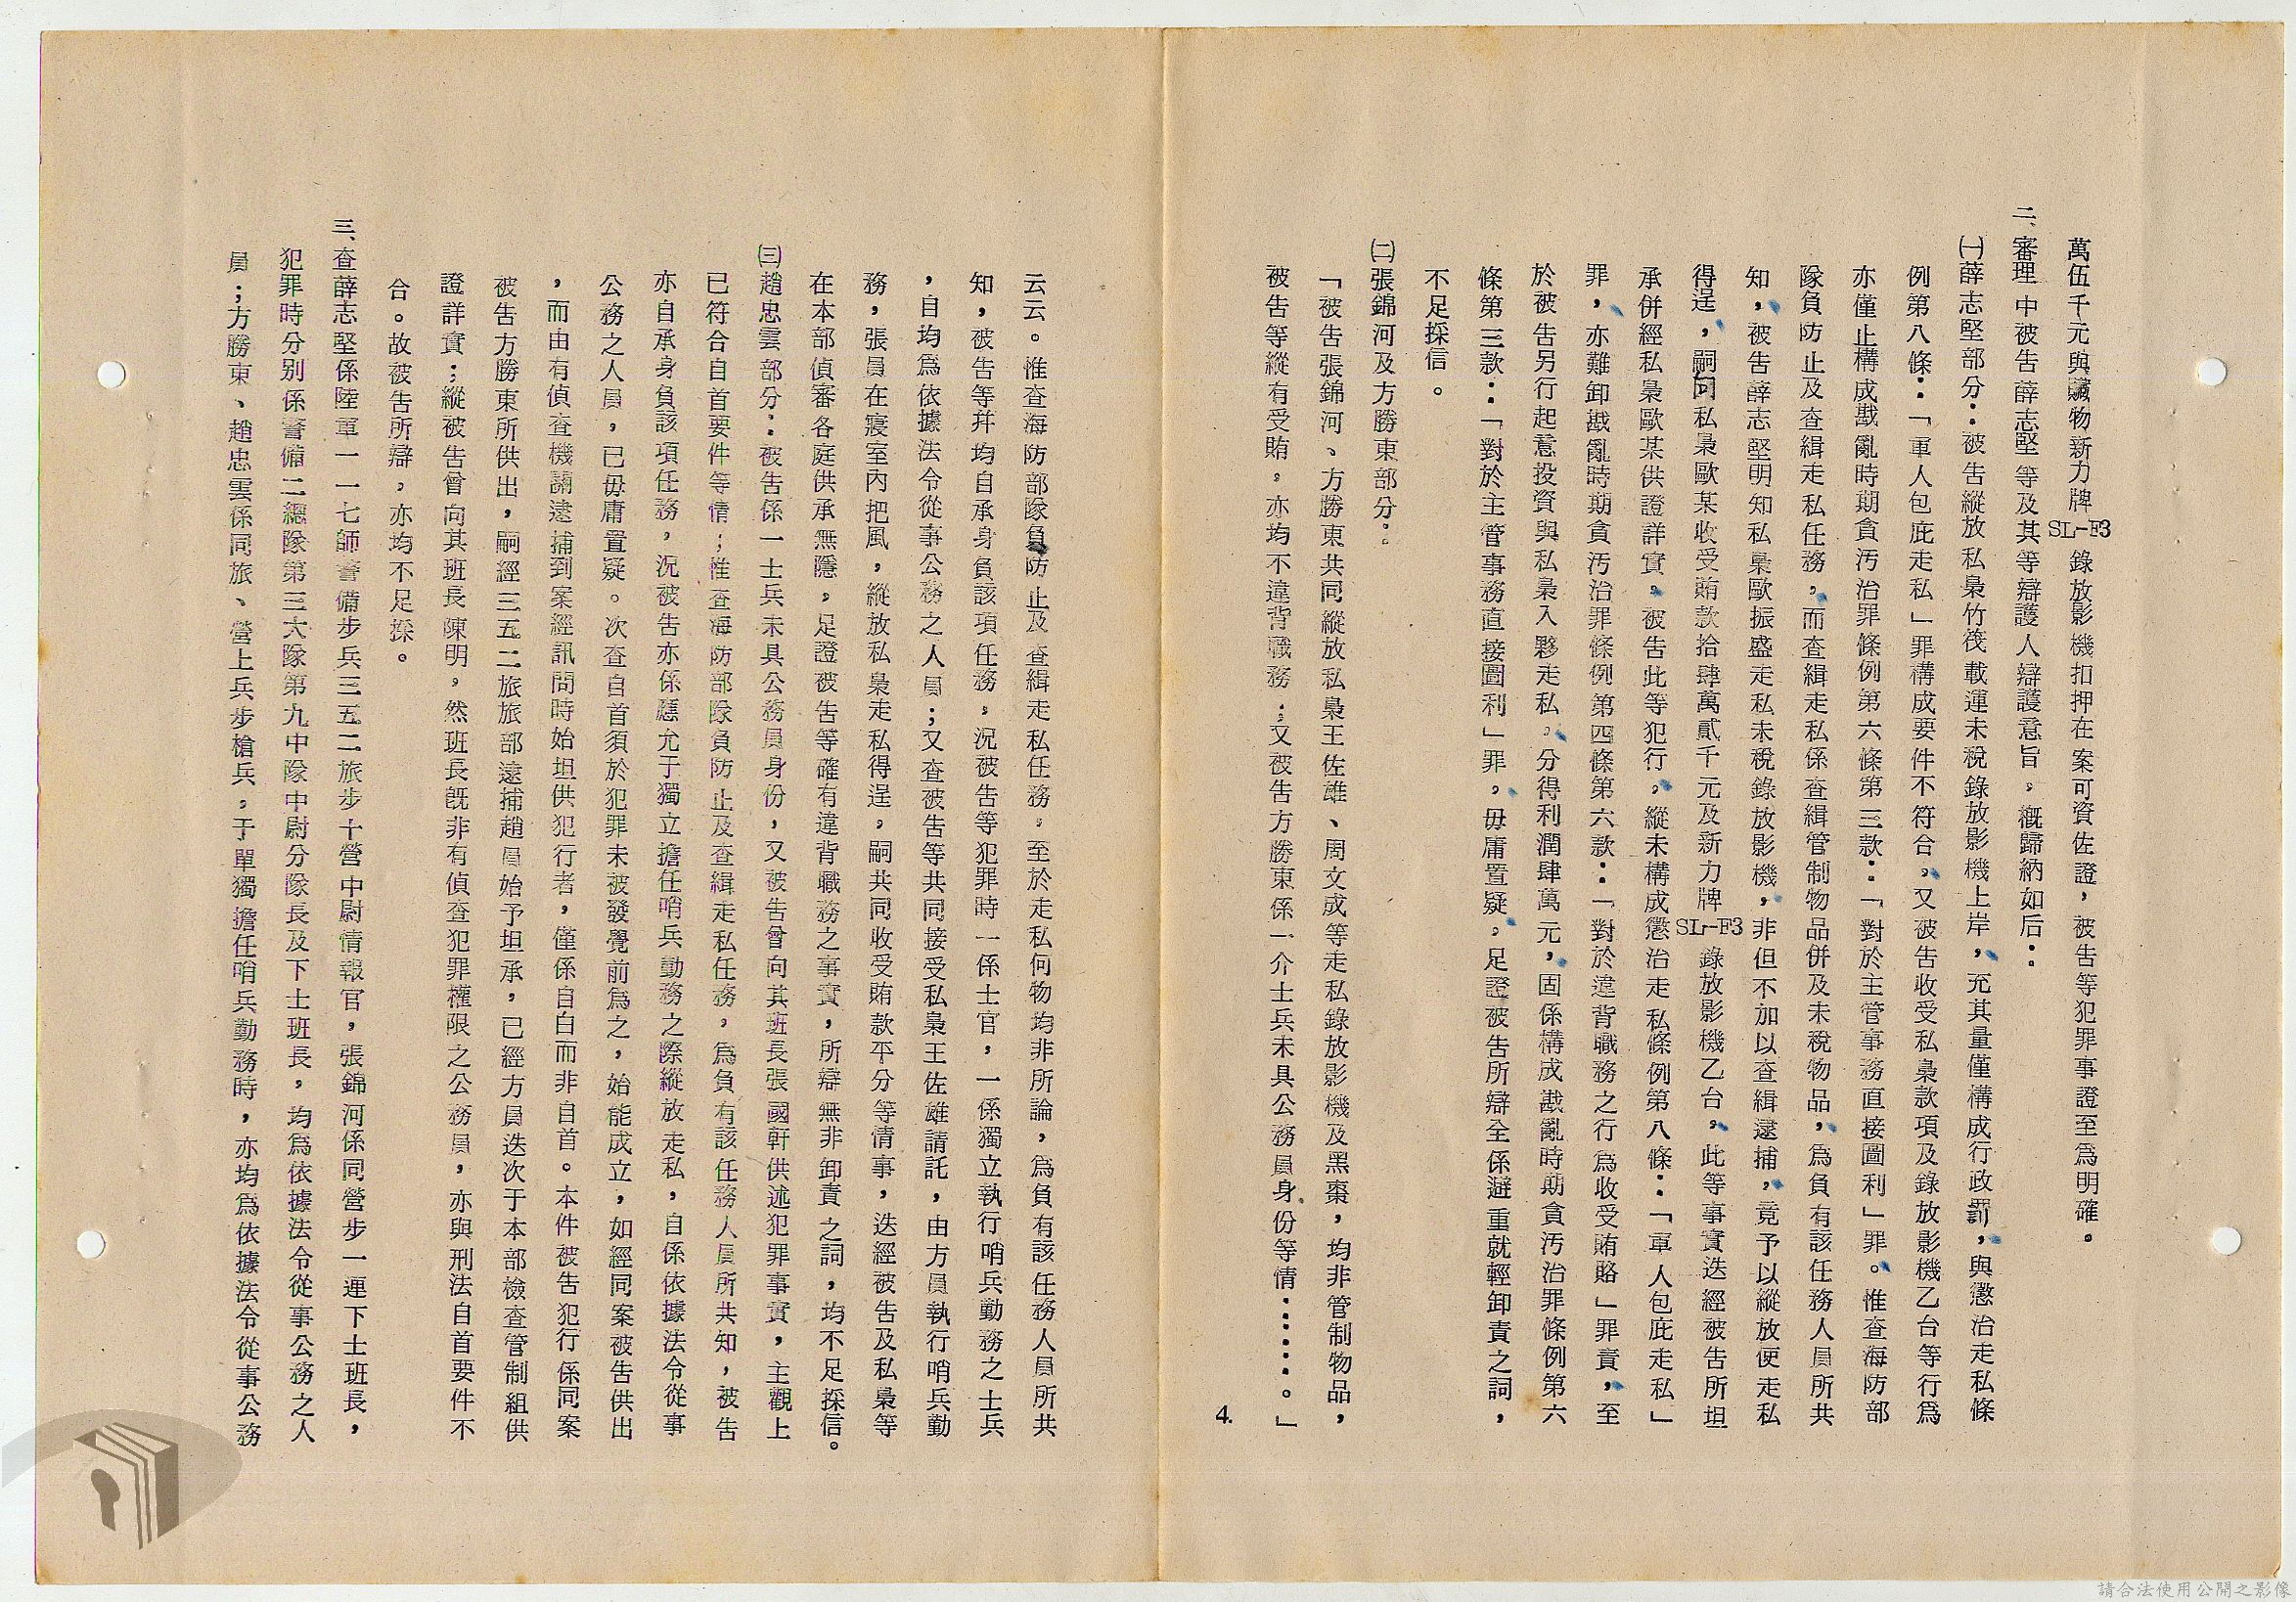 萬伍千元與贓物新力牌SL-F3錄放影機扣押在案可資佐證，被告等犯罪事證至為明確。
二、審理中被告薛志堅等及其等辯護人辯護意旨，概歸納如后：
㈠薛志堅部分：被告縱放私梟竹筏載運未稅錄放影機上岸，充其量僅構成行政罰，與懲治走私條
例第八條：「軍人包庇走私」罪構成要件不符合。又被告收受私梟款項及錄放影機乙台等行為
亦僅止構成戡亂時期貪污治罪條例第六條第三款：「對於主管事務直接圖利」罪。惟查海防部
隊負防止及查緝走私任務，而查緝走私係查緝管制物品併及未稅物品，為負有該任務人員所共
知，被告薛志堅明知私梟歐振盛走私未稅錄放影機，非但不加以查緝逮捕，竟予以縱放便走私
得逞，嗣向私梟歐某收受賄款拾肆萬貳千元及新力牌SL-F3錄放影機乙台，此等事實迭經被告所坦
承併經私梟歐某供證詳實。被告此等犯行，縱未構成懲治走私條例第八條：「軍人包庇走私」
罪，亦難卸戡亂時期貪污治罪條例第四條第六款：「對於違背職務之行為收受賄賂」罪責，至
於被告另行起意投資與私梟入夥走私，分得利潤肆萬元，固係構成戡亂時期貪污治罪條例第六
條第三款：「對於主管事務直接圖利」罪，毋庸置疑，足證被告所辯全係避重就輕卸責之詞，
不足採信。
㈡張錦河及方勝東部分：
「被告張錦河、方勝東共同縱放私梟王佐雄、周文成等走私錄放影機及黑棗，均非管制物品，
被告等縱有受賄，亦均不違背職務；又被告方勝東係一介士兵未具公務員身份等情……。」
4.
云云。惟查海防部隊負防止及查緝走私任務，至於走私何物均非所論，為負有該任務人員所共
知，被告等幷均自承身負該項任務，況被告等犯罪時一係士官，一係獨立執行哨兵勤務之士兵
，自均為依據法令從事公務之人員；又查被告等共同接受私梟王佐雄請託，由方員執行哨兵勤
務，張員在寢室內把風，縱放私梟走私得逞，嗣共同收受賄款平分等情事，迭經被告及私梟等
在本部偵審各庭供承無隱，足證被告等確有違背職務之事實，所辯無非卸責之詞，均不足採信。
㈢趙忠雲部分：被告係一士兵未具公務員身份，又被告曾向其班長張國軒供述犯罪事實，主觀上
已符合自首要件等情；惟查海防部隊負防止及查緝走私任務，為負有該任務人員所共知，被告
亦自承身負該項任務，況被告亦係應允于獨立擔任哨兵勤務之際縱放走私，自係依據法令從事
公務之人員，已毋庸置疑。次查自首須於犯罪未被發覺前為之，始能成立，如經同案被告供出
，而由有偵查機關逮捕到案經訊問時始坦供犯行者，僅係自白而非自首。本件被告犯行係同案
被告方勝東所供出，嗣經三五二旅旅部逮捕趙員始予坦承，已經方員迭次于本部檢查管制組供
證詳實；縱被告曾向其班長陳明，然班長既非有偵查犯罪權限之公務員，亦與刑法自首要件不
合。故被告所辯，亦均不足採。
三、查薛志堅係陸軍一一七師警備步兵三五二旅步十營中尉情報官，張錦河係同營步一連下士班長，
犯罪時分別係警備二總隊第三六隊第九中隊中尉分隊長及下士班長，均為依據法令從事公務之人
員；方勝東、趙忠雲係同旅、營上兵步槍兵，于單獨擔任哨兵勤務時，亦均為依據法令從事公務
請合法使用公開之影像